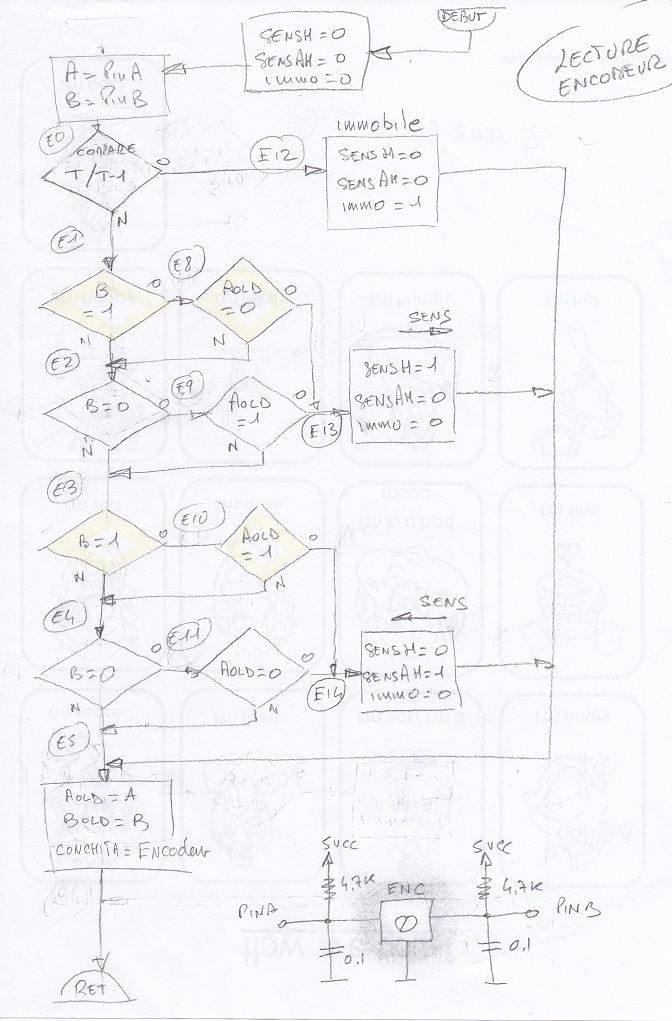 DEBUT
LECTURE
ENCODEUR
SENSH = 0
SENSAH = 0
immo = 0
A = PinA
B = PinB
E0
COMPARE
T/T-1
O
N
E12
immobile
SENSH = 0
SENSAH = 0
immo = 1
E1
B
= 1
O
N
E8
AOLD
= 0
O
N
SENS
E2
B = 0
O
N
E9
AOLD
= 1
O
N
E13
SENSH = 1
SENSAH = 0
immo = 0
E3
B = 1
O
N
E10
AOLD
= 1
O
N
SENS
E4
B = 0
O
N
E11
AOLD = 0
O
N
E14
SENSH = 0
SENSAH = 1
immo = 0
E5
AOLD = A
BOLD = B
CONCHITA = Encodeur
RET
5VCC
5VCC
4,7K
ENC
4,7K
PINA
PINB
0.1
0.1